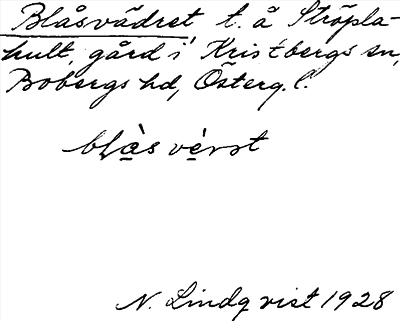 Blåsvädret, t. å Ströpla-
hult, gård i Kristbergs sn,
Bobergs hd, Österg. l.
blàs vérst
N. Lindqvist 1928